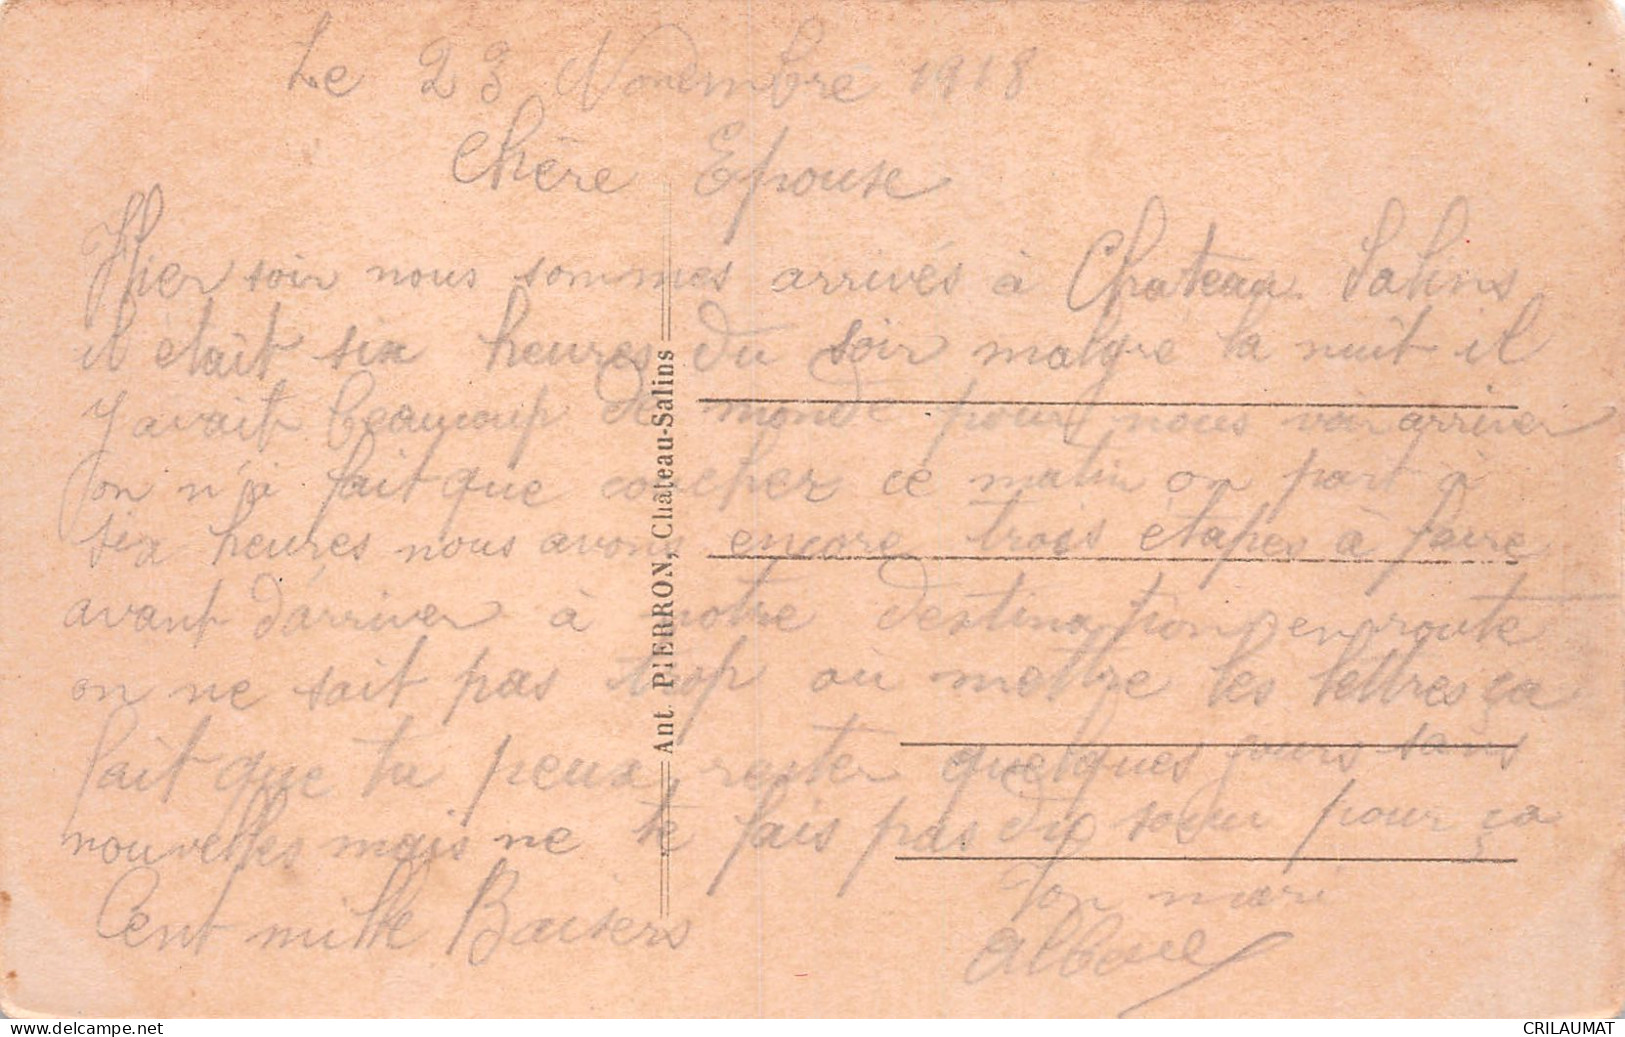 Le 23 Novembre 1918
Chère Epouse
Hier soir nous sommes arrivés à Chateau. Salins
il était six heures du soir malgre la nuit il
y avait beaucoup de monde pour nous voir arriver
on n'a fait que coucher ce matin on part à
six heures nous avons encore trois étapes à faire
avant d'arriver à notre destination en route
on ne sait pas trop où mettre les lettres ça
fait que tu peux rester quelques jours sans
nouvelles mais ne te fais pas du soeur pour ça
Cent mille Baisers
Ton mari
Ant. PIERRON, Château-Salins
CRILAUMAT
delcampe.net